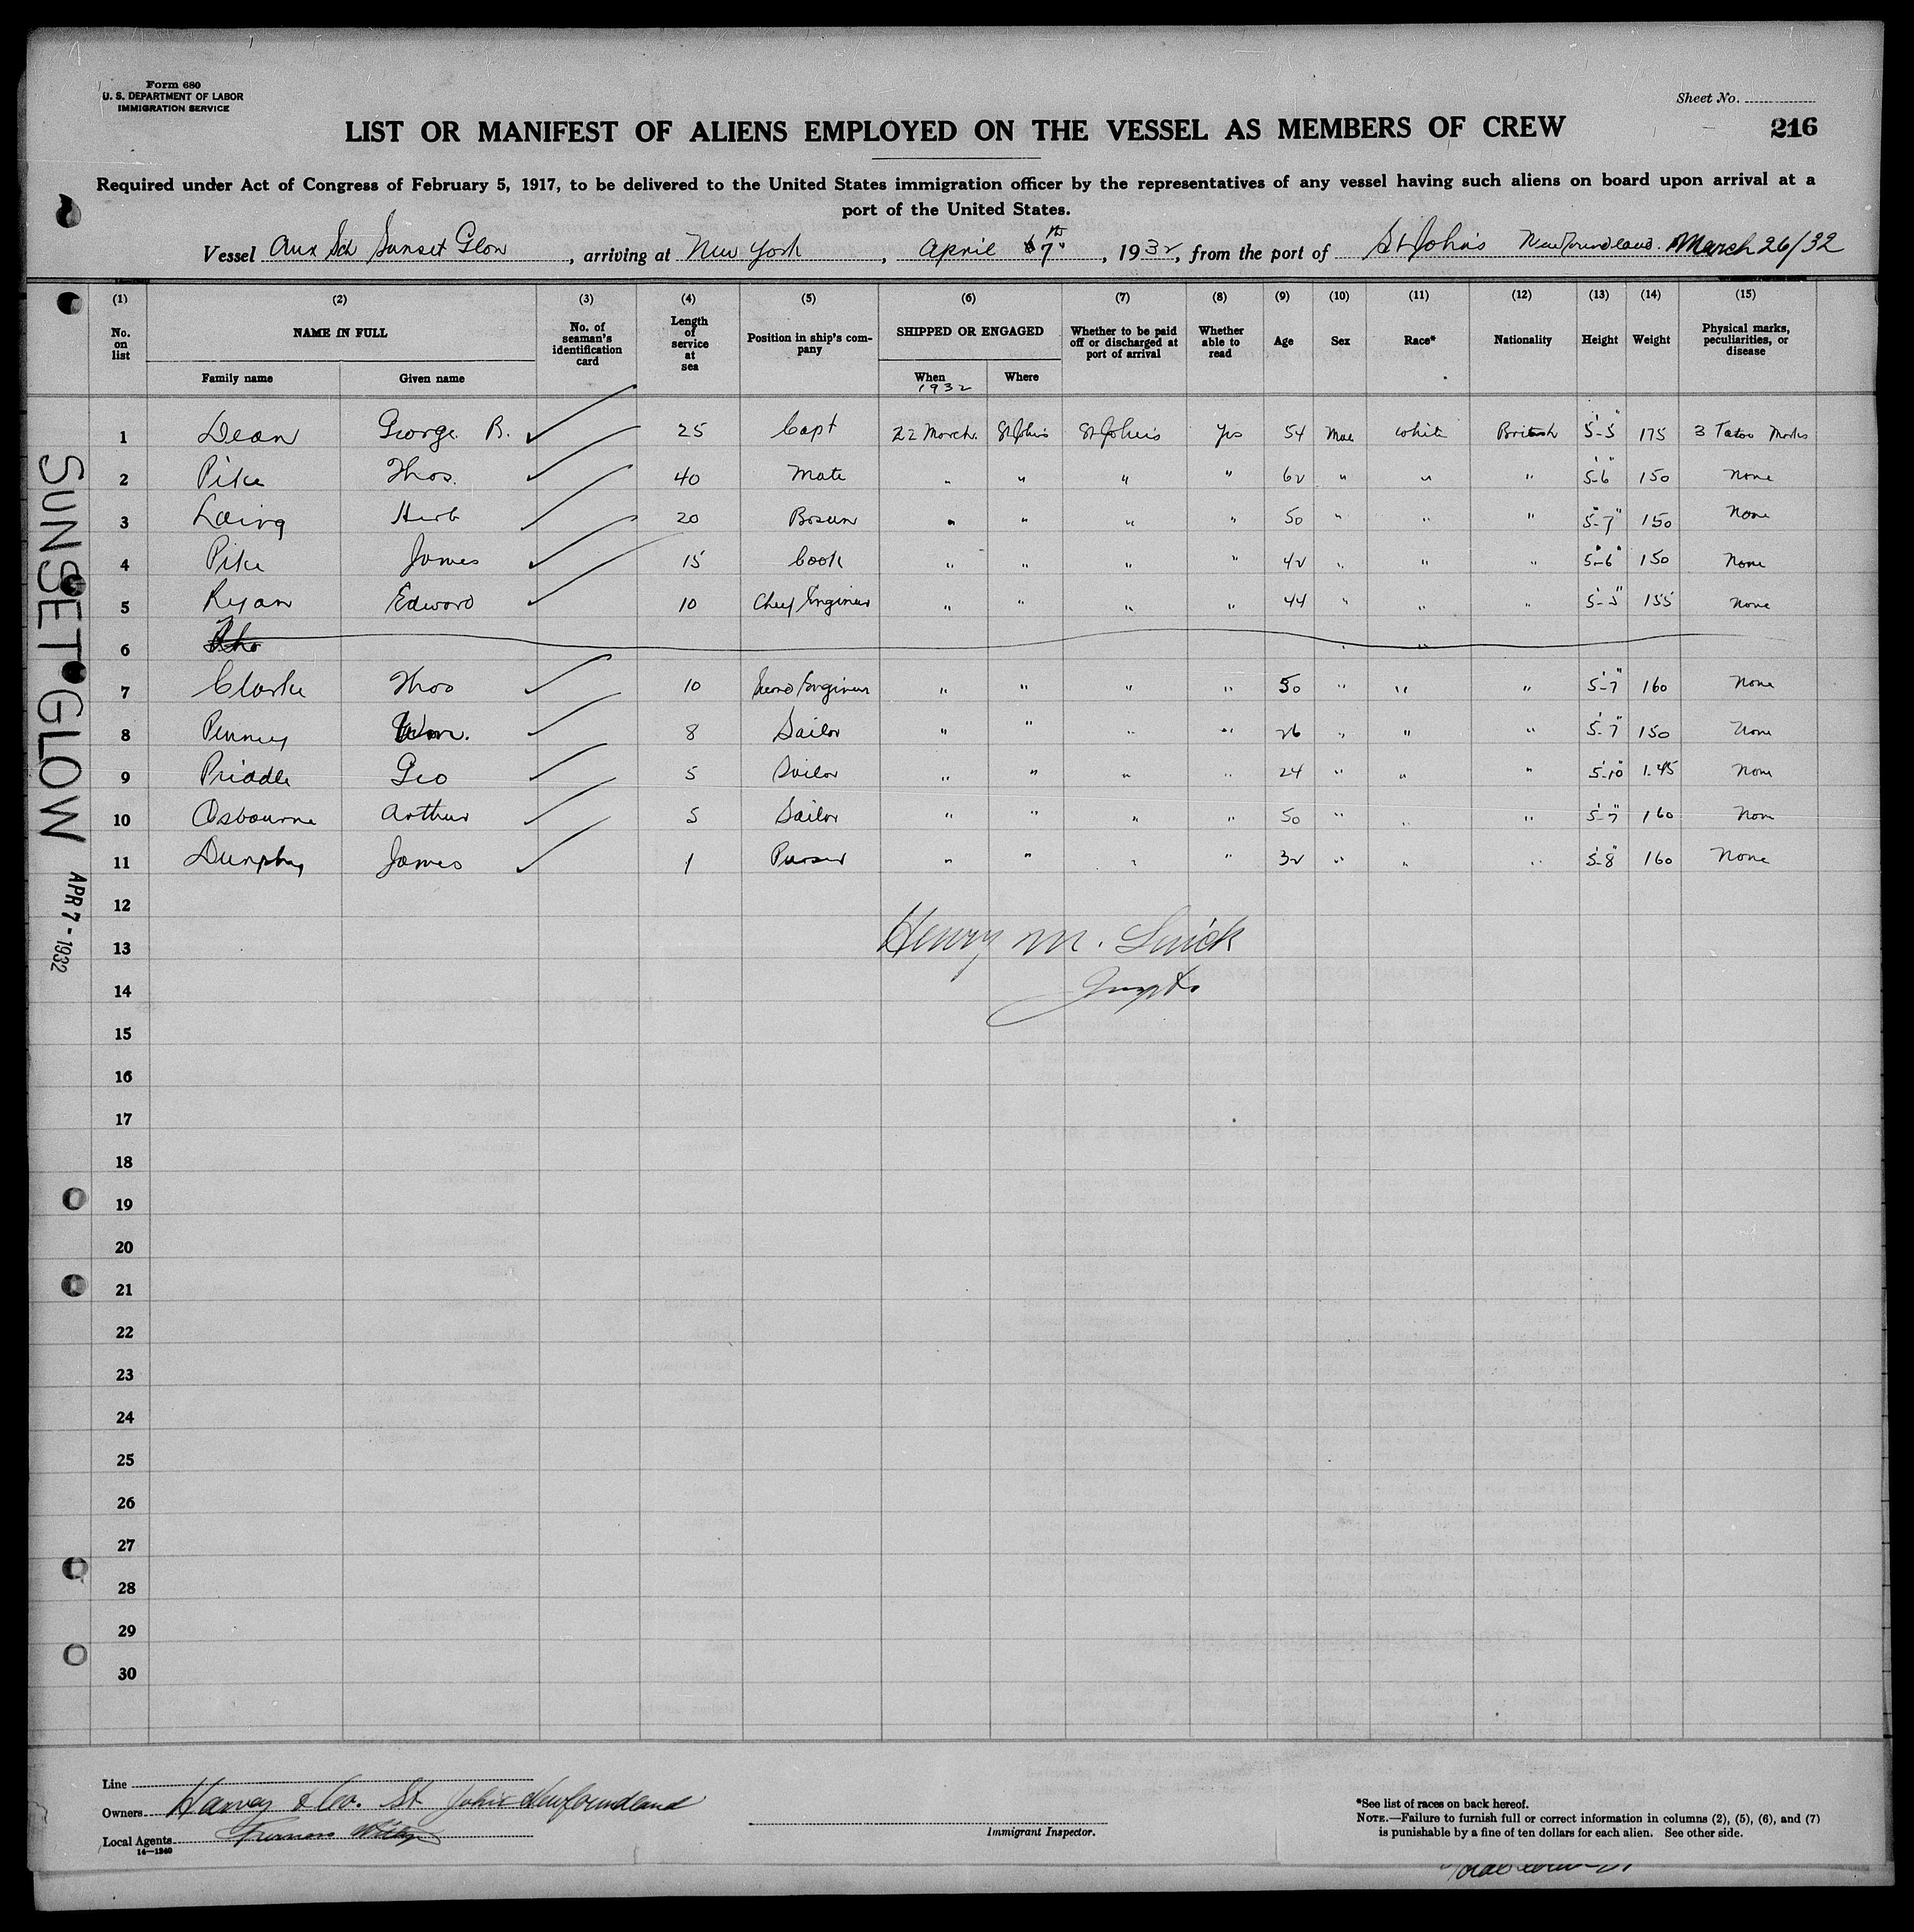 Form 680
U. S. DEPARTMENT OF LABOR
IMMIGRATION SERVICE
Sheet No.
LIST OR MANIFEST OF ALIENS EMPLOYED ON THE VESSEL AS MEMBERS OF CREW
216
Required under Act of Congress of February 5, 1917, to be delivered to the United States immigration officer by the representatives of any vessel having such aliens on board upon arrival at a
port of the United States.
Vessel Aux Sch Sunset Glow, arriving at New York, April 7th, 1932, from the port of St John's Newfoundland. March 26/32
(1) (2) (3) (4) (5) (6) (7) (8) (9) (10) (11) (12) (13) (14) (15)
No. on list NAME IN FULL Family name Given name No. of seaman's identification card Length of service at sea Position in ship's company SHIPPED OR ENGAGED When 1932 Where Whether to be paid off or discharged at port of arrival Whether able to read Age Sex Race* Nationality Height Weight Physical marks, peculiarities, or disease
1 Dean George B. 25 Capt 22 March. St John's St John's Yes 54 Mae White British 5'-5" 175 3 Tatoo Marks
2 Pike Thos. 40 Mate " " " " 62 " " " 5'-6" 150 None
3 Laing Herb 20 Bosun " " " " 50 " " " 5'-7" 150 None
4 Pike James 15 Cook " " " " 42 " " " 5'-6" 150 None
5 Ryan Edward 10 Chief Engineer " " " " 44 " " " 5'-5" 155 None
6
7 Clarke Thos 10 Second Engineer " " " " 50 " " " 5'-7" 160 None
8 Penney Wm. 8 Sailor " " " " 26 " " " 5'-7" 150 None
9 Priddle Geo 5 Sailor " " " " 24 " " " 5'-10" 145 None
10 Osbourne Arthur 5 Sailor " " " " 50 " " " 5'-7" 160 None
11 Dunphy James 1 Purser " " " " 32 " " " 5'-8" 160 None
12
13 Henry M.
14
15
16
17
18
19
20
21
22
23
24
25
26
27
28
29
30
SUNSET GLOW APR 7 - 1932
Line
Owners Harvey & Co. St John's Newfoundland
Local Agents Furness Withy
14—1240
Immigrant Inspector.
*See list of races on back hereof.
NOTE.—Failure to furnish full or correct information in columns (2), (5), (6), and (7)
is punishable by a fine of ten dollars for each alien. See other side.